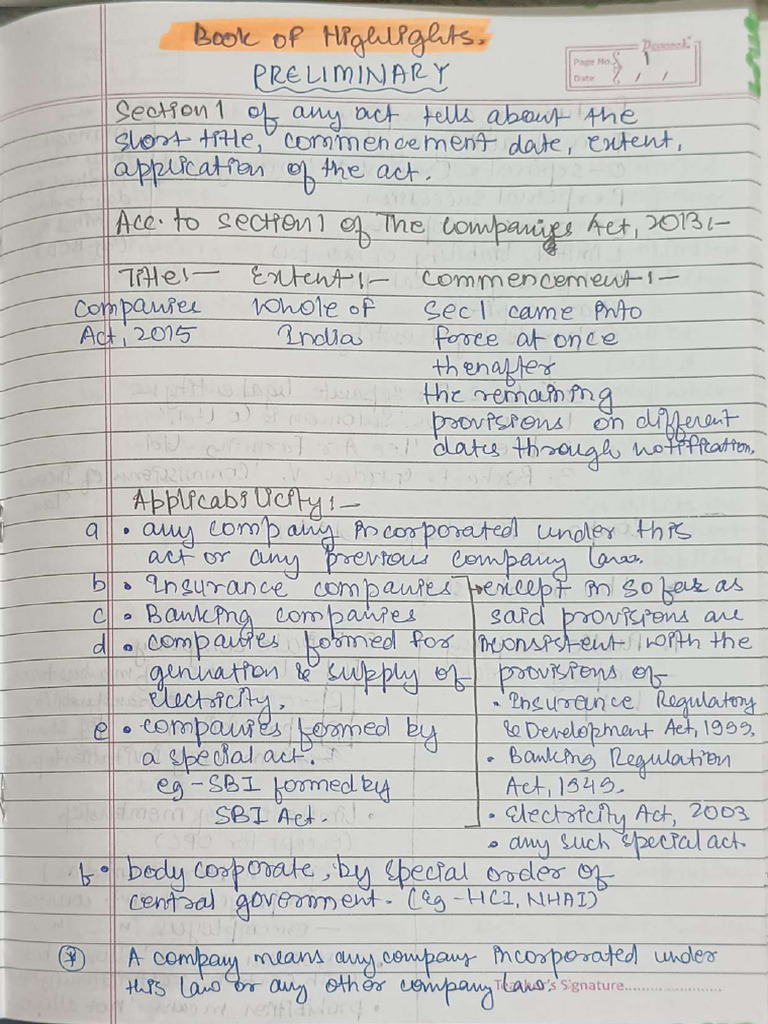 Book of Highlights.
PRELIMINARY
Page No. 1
Date
Section 1 of any act tells about the
short title, commencement date, extent,
application of the act.
Acc. to section 1 of The Companies Act, 2013:-
Title:- Extent:- Commencement:-
Companies Whole of Sec 1 came into
Act, 2015 India force at once
thenafter
the remaining
provisions on different
dates through notification.
Applicability:-
a • any company incorporated under this
act or any previous company laws.
b • Insurance companies
c • Banking companies
d • companies formed for
genration & supply of
electricity.
e • companies formed by
a special act.
eg - SBI formed by
SBI Act.
except in so far as
said provisions are
inconsistent with the
provisions of
• Insurance Regulatory
& Development Act, 1999.
• Banking Regulation
Act, 1949.
• Electricity Act, 2003
• any such special act
f • body corporate, by special order of
central government. (Eg - HCI, NHAI)
* A company means any company incorporated under
this law or any other company law.
Teacher's Signature